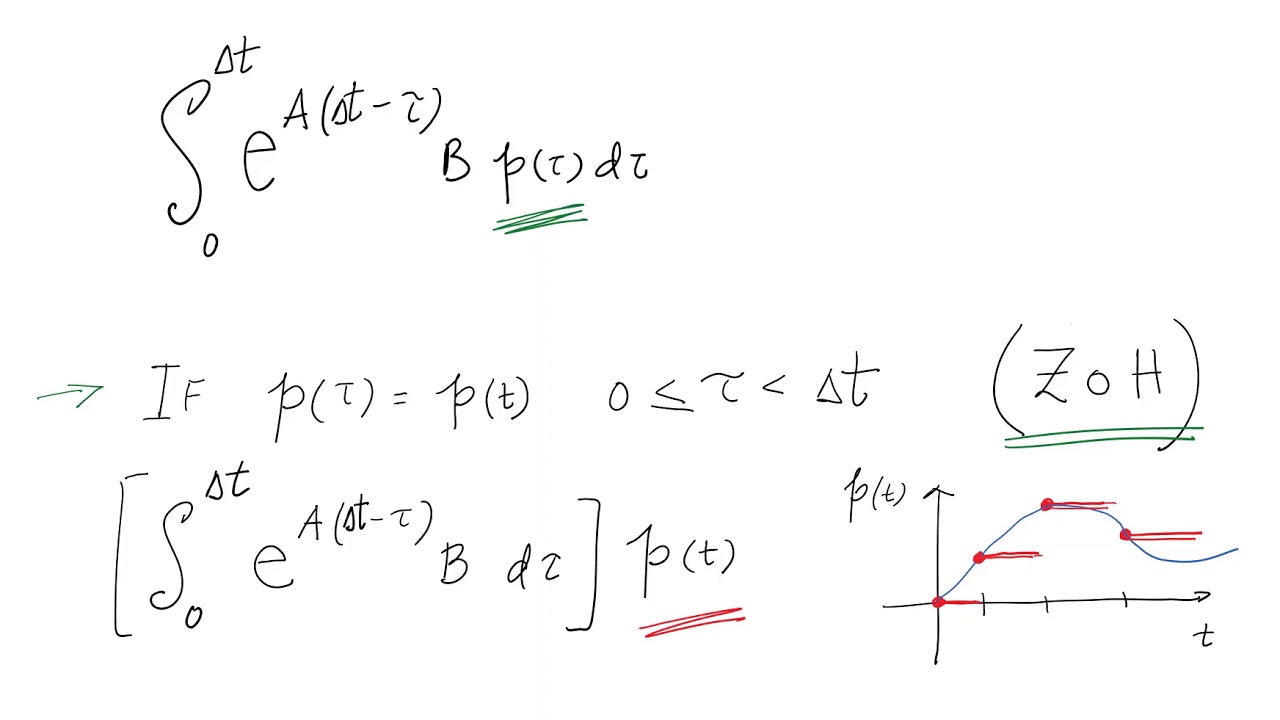 ∫₀^Δt e^A(Δt-τ) B p(τ) dτ
→ IF p(τ) = p(t) 0 ≤ τ < Δt (ZOH)
[∫₀^Δt e^A(Δt-τ) B dτ] p(t)
p(t)
t